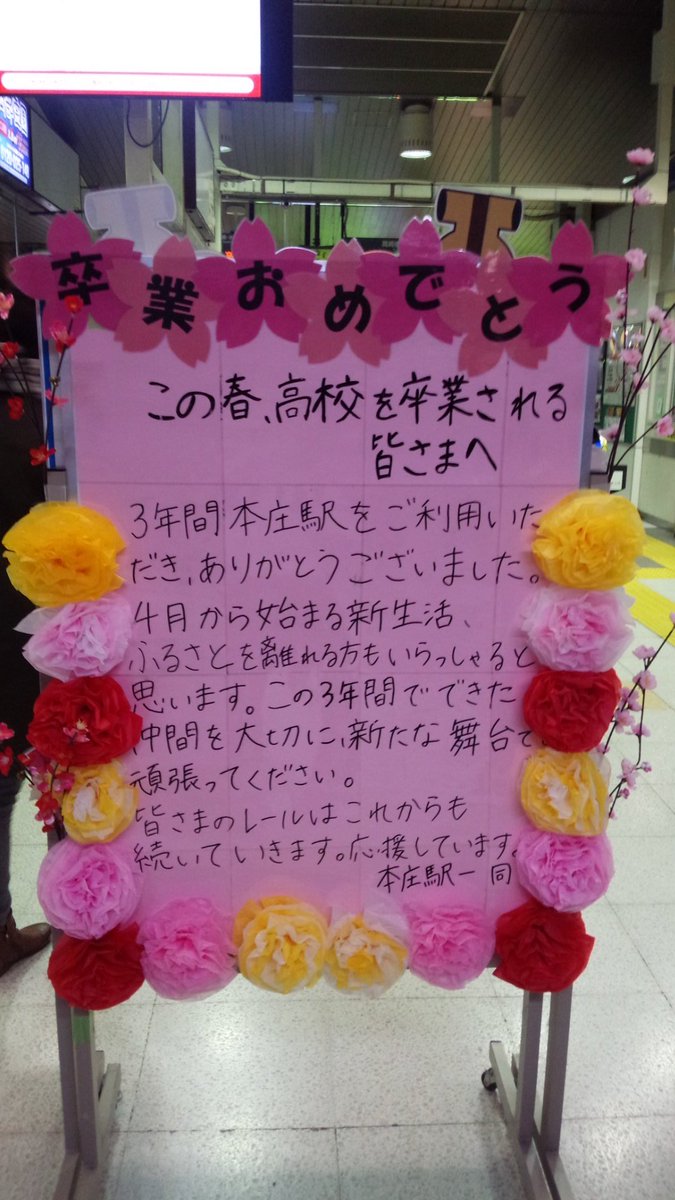 卒業おめでとう
この春、高校を卒業される
皆さまへ
3年間本庄駅をご利用いた
だき、ありがとうございました。
4月から始まる新生活、
ふるさとを離れる方もいらっしゃると
思います。この3年間でできた
仲間を大切に、新たな舞台で
頑張ってください。
皆さまのレールはこれからも
続いていきます。応援しています。
本庄駅一同